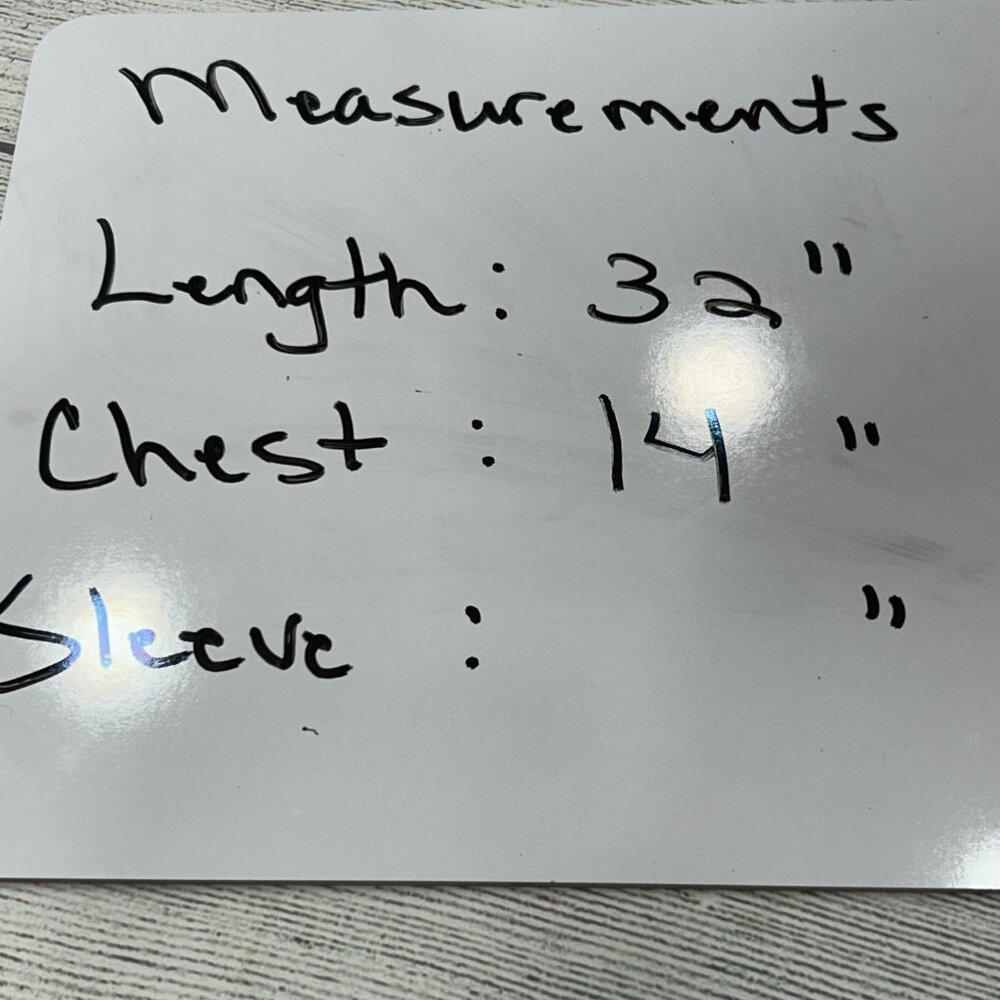 Measurements
Length: 32"
Chest : 14 "
Sleeve : "